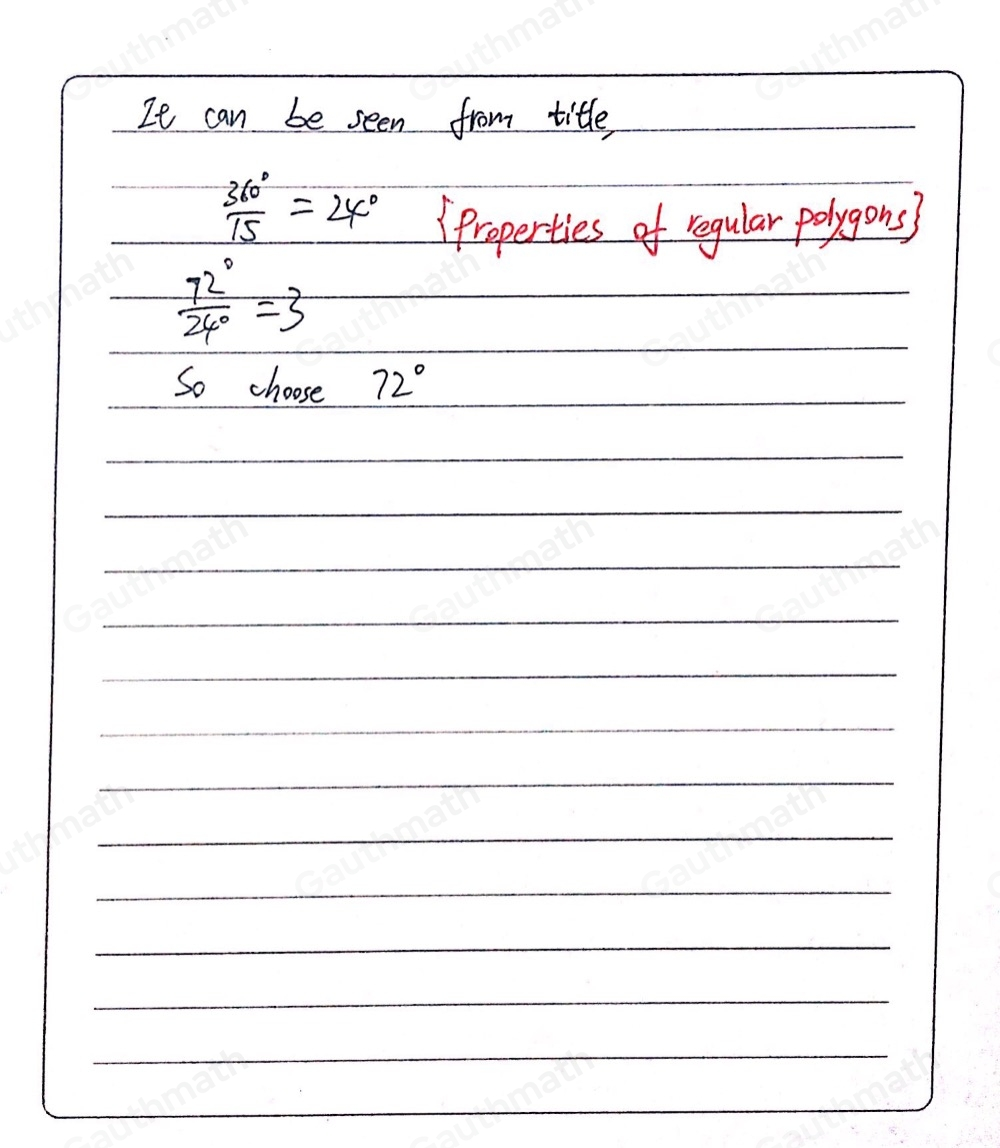 It can be seen from title,
360°/15 = 24° {Properties of regular polygons}
72°/24° = 3
So choose 72°
Gauthmath